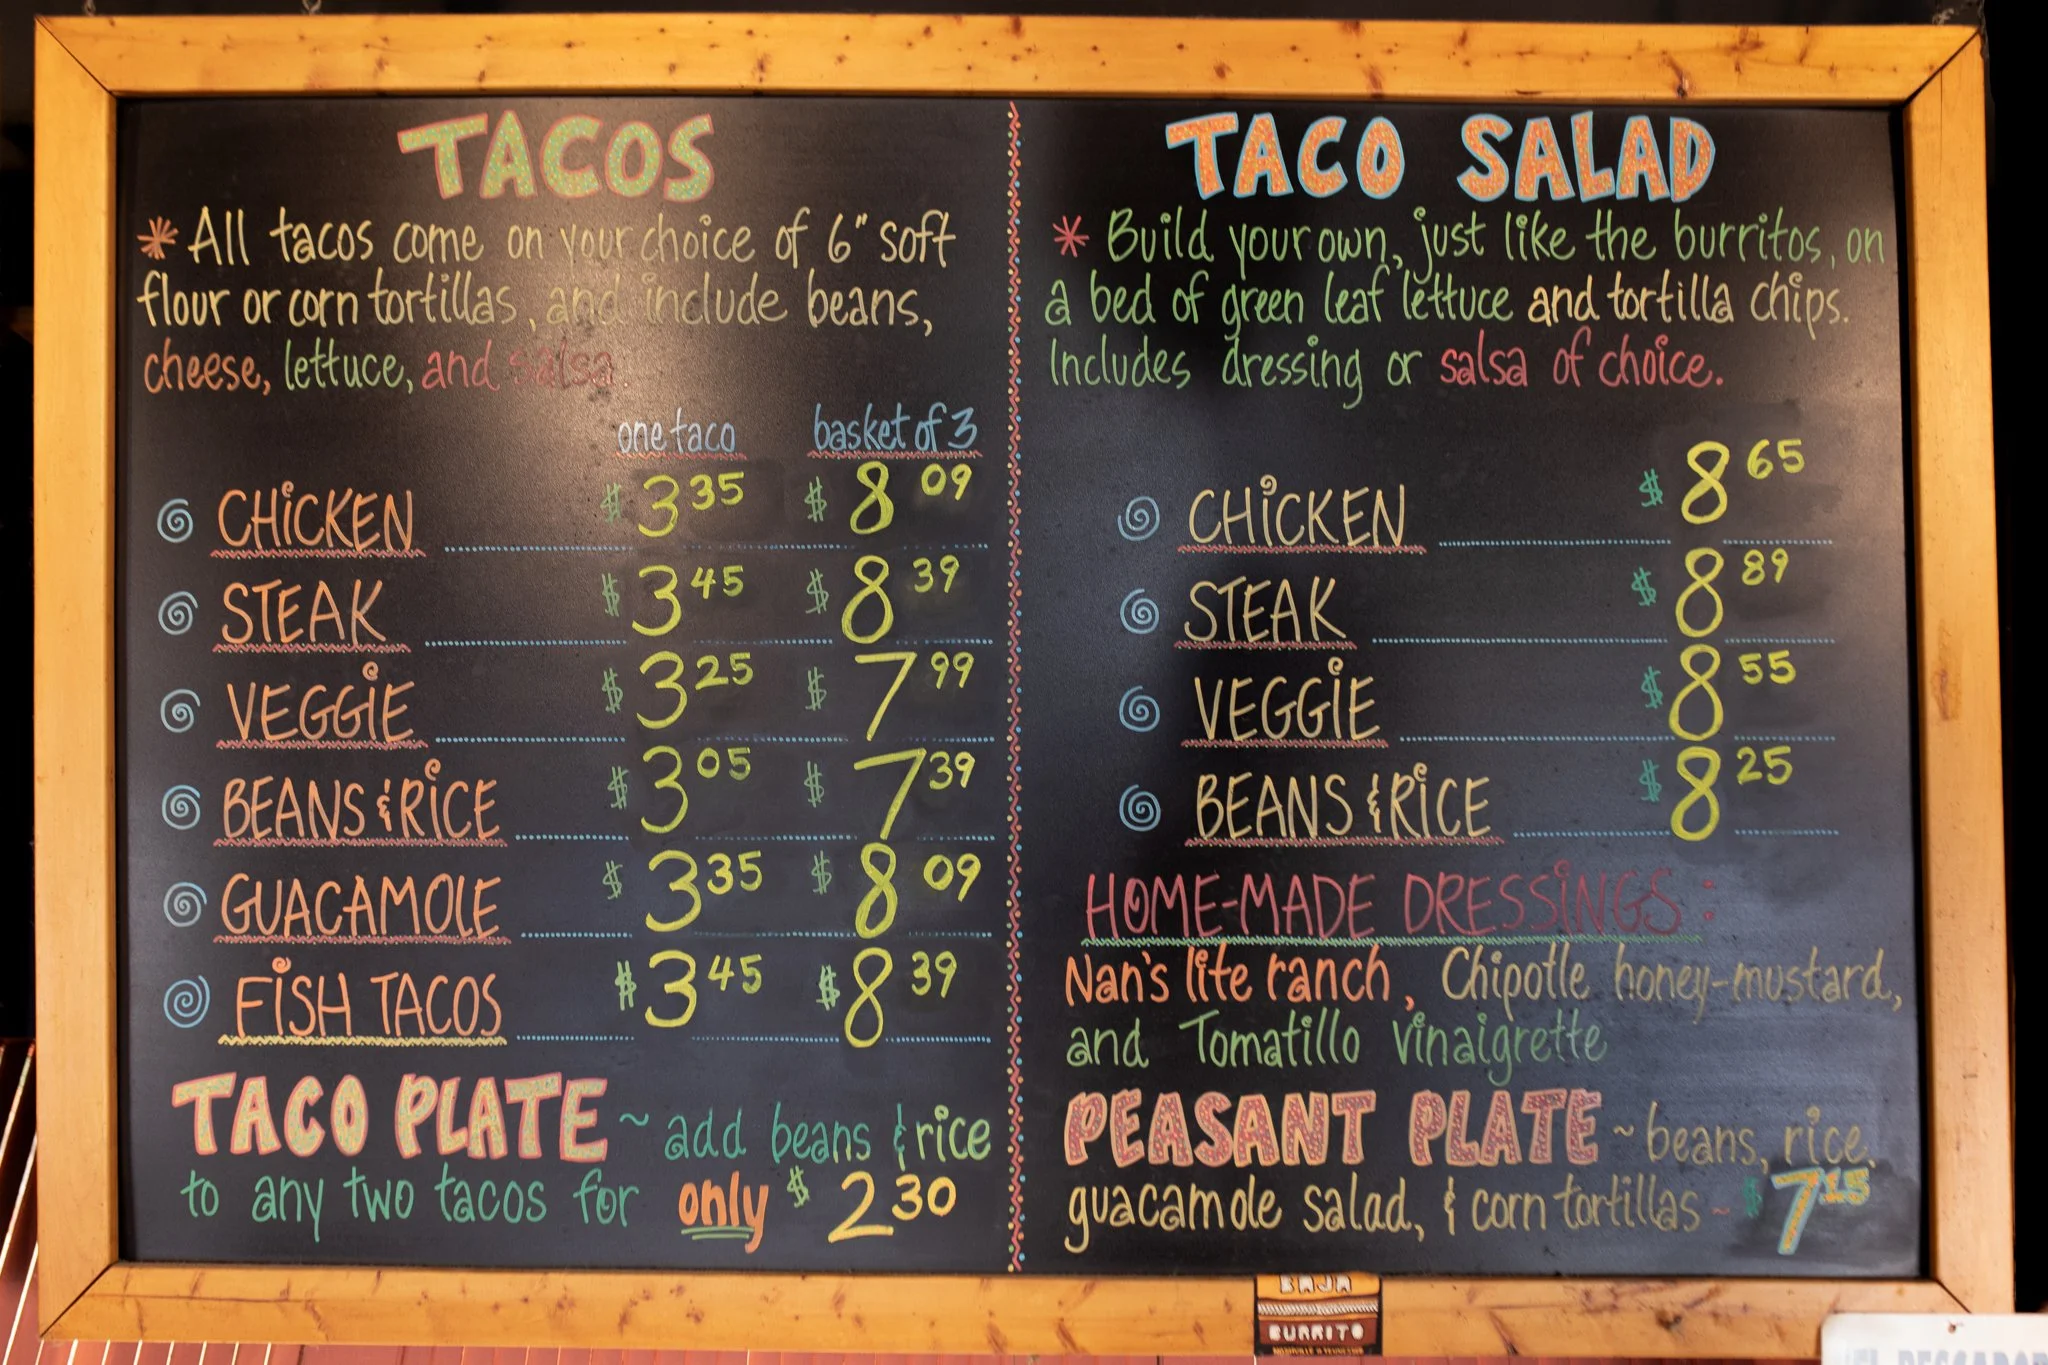 TACOS
* All tacos come on your choice of 6" soft
flour or corn tortillas, and include beans,
cheese, lettuce, and salsa.
one taco basket of 3
CHICKEN $3.35 $8.09
STEAK $3.45 $8.39
VEGGIE $3.25 $7.99
BEANS & RICE $3.05 $7.39
GUACAMOLE $3.35 $8.09
FISH TACOS $3.45 $8.39
TACO PLATE ~ add beans & rice
to any two tacos for only $2.30
TACO SALAD
* Build your own, just like the burritos, on
a bed of green leaf lettuce and tortilla chips.
Includes dressing or salsa of choice.
CHICKEN $8.65
STEAK $8.89
VEGGIE $8.55
BEANS & RICE $8.25
HOME-MADE DRESSINGS:
Nan's lite ranch, Chipotle honey-mustard,
and Tomatillo vinaigrette
PEASANT PLATE ~ beans, rice,
guacamole salad, & corn tortillas ~ $7.15
BAJA
BURRITO